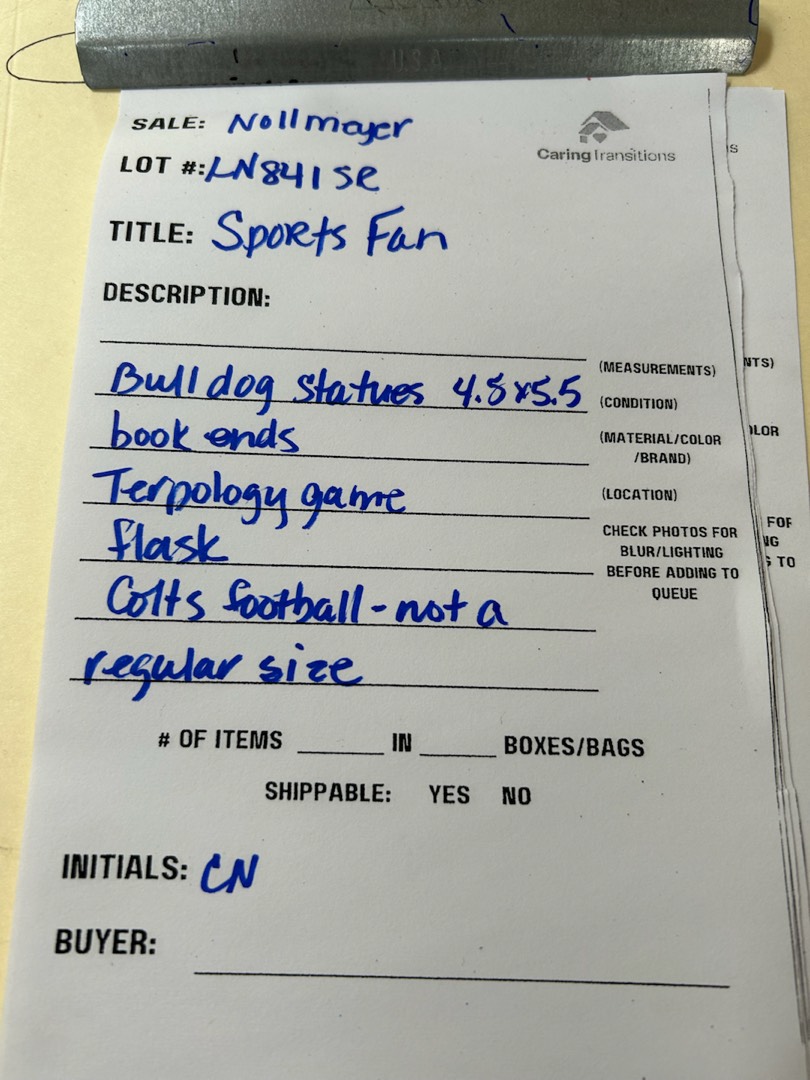 USA
SALE: Nollmayer
Caring Transitions
LOT #: LN841SR
TITLE: Sports Fan
DESCRIPTION:
(MEASUREMENTS)
Bulldog Statues 4.8x5.5
(CONDITION)
book ends
(MATERIAL/COLOR
/BRAND)
Terpology game
(LOCATION)
flask
CHECK PHOTOS FOR
BLUR/LIGHTING
BEFORE ADDING TO
QUEUE
Colts football - not a
regular size
# OF ITEMS ______ IN ______ BOXES/BAGS
SHIPPABLE: YES NO
INITIALS: CN
BUYER: